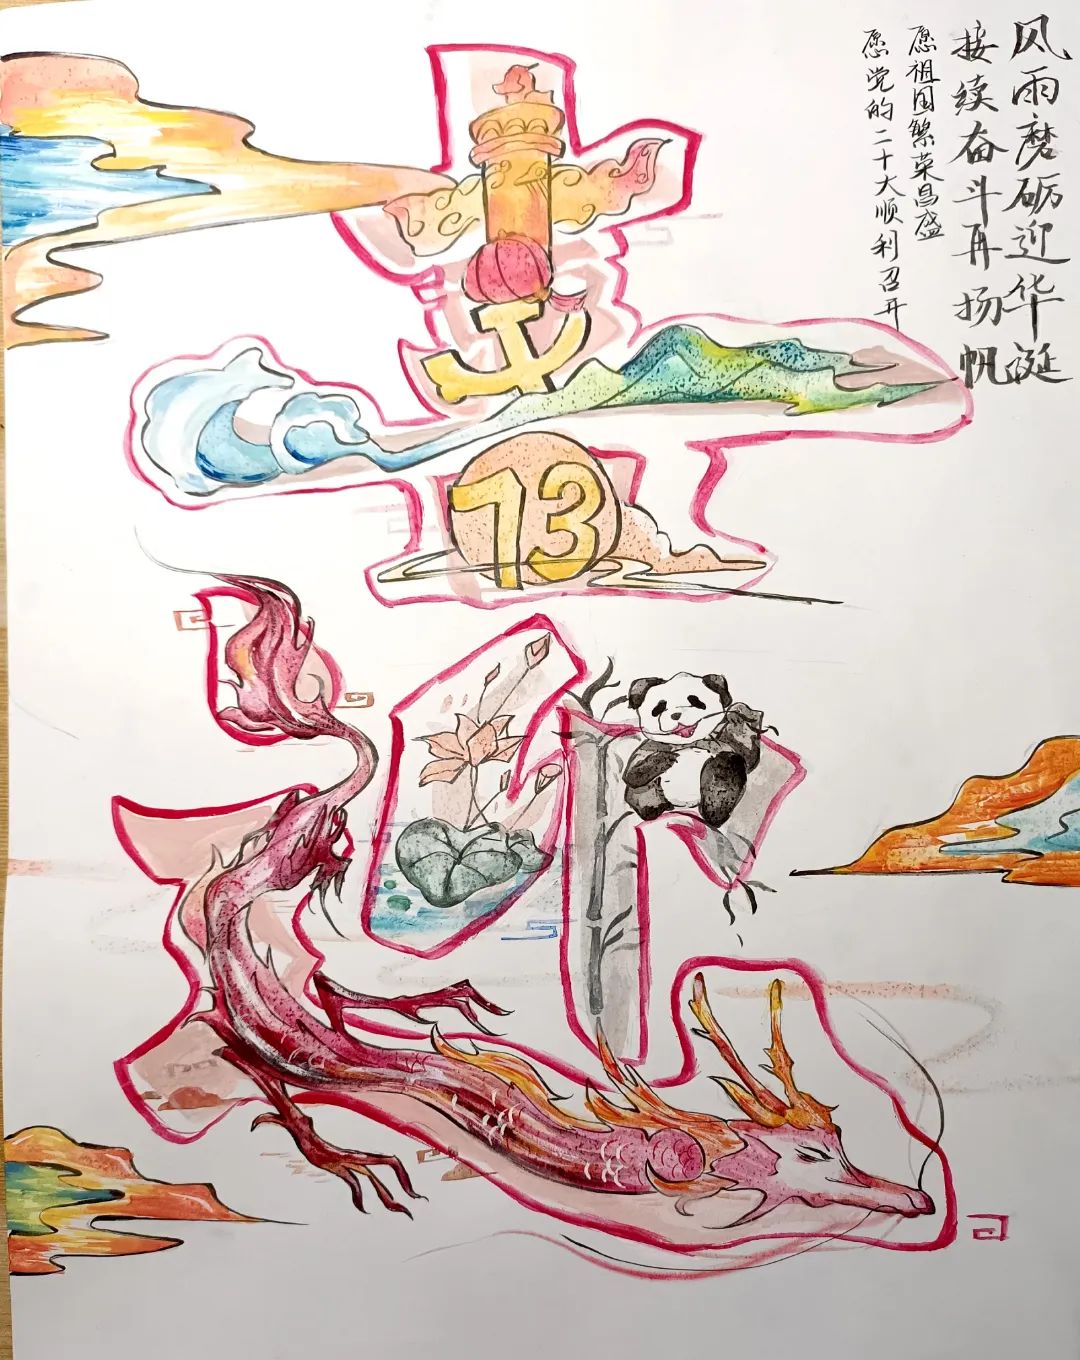 喜迎
73
风雨磨砺迎华诞
接续奋斗再扬帆
愿祖国繁荣昌盛
愿党的二十大顺利召开